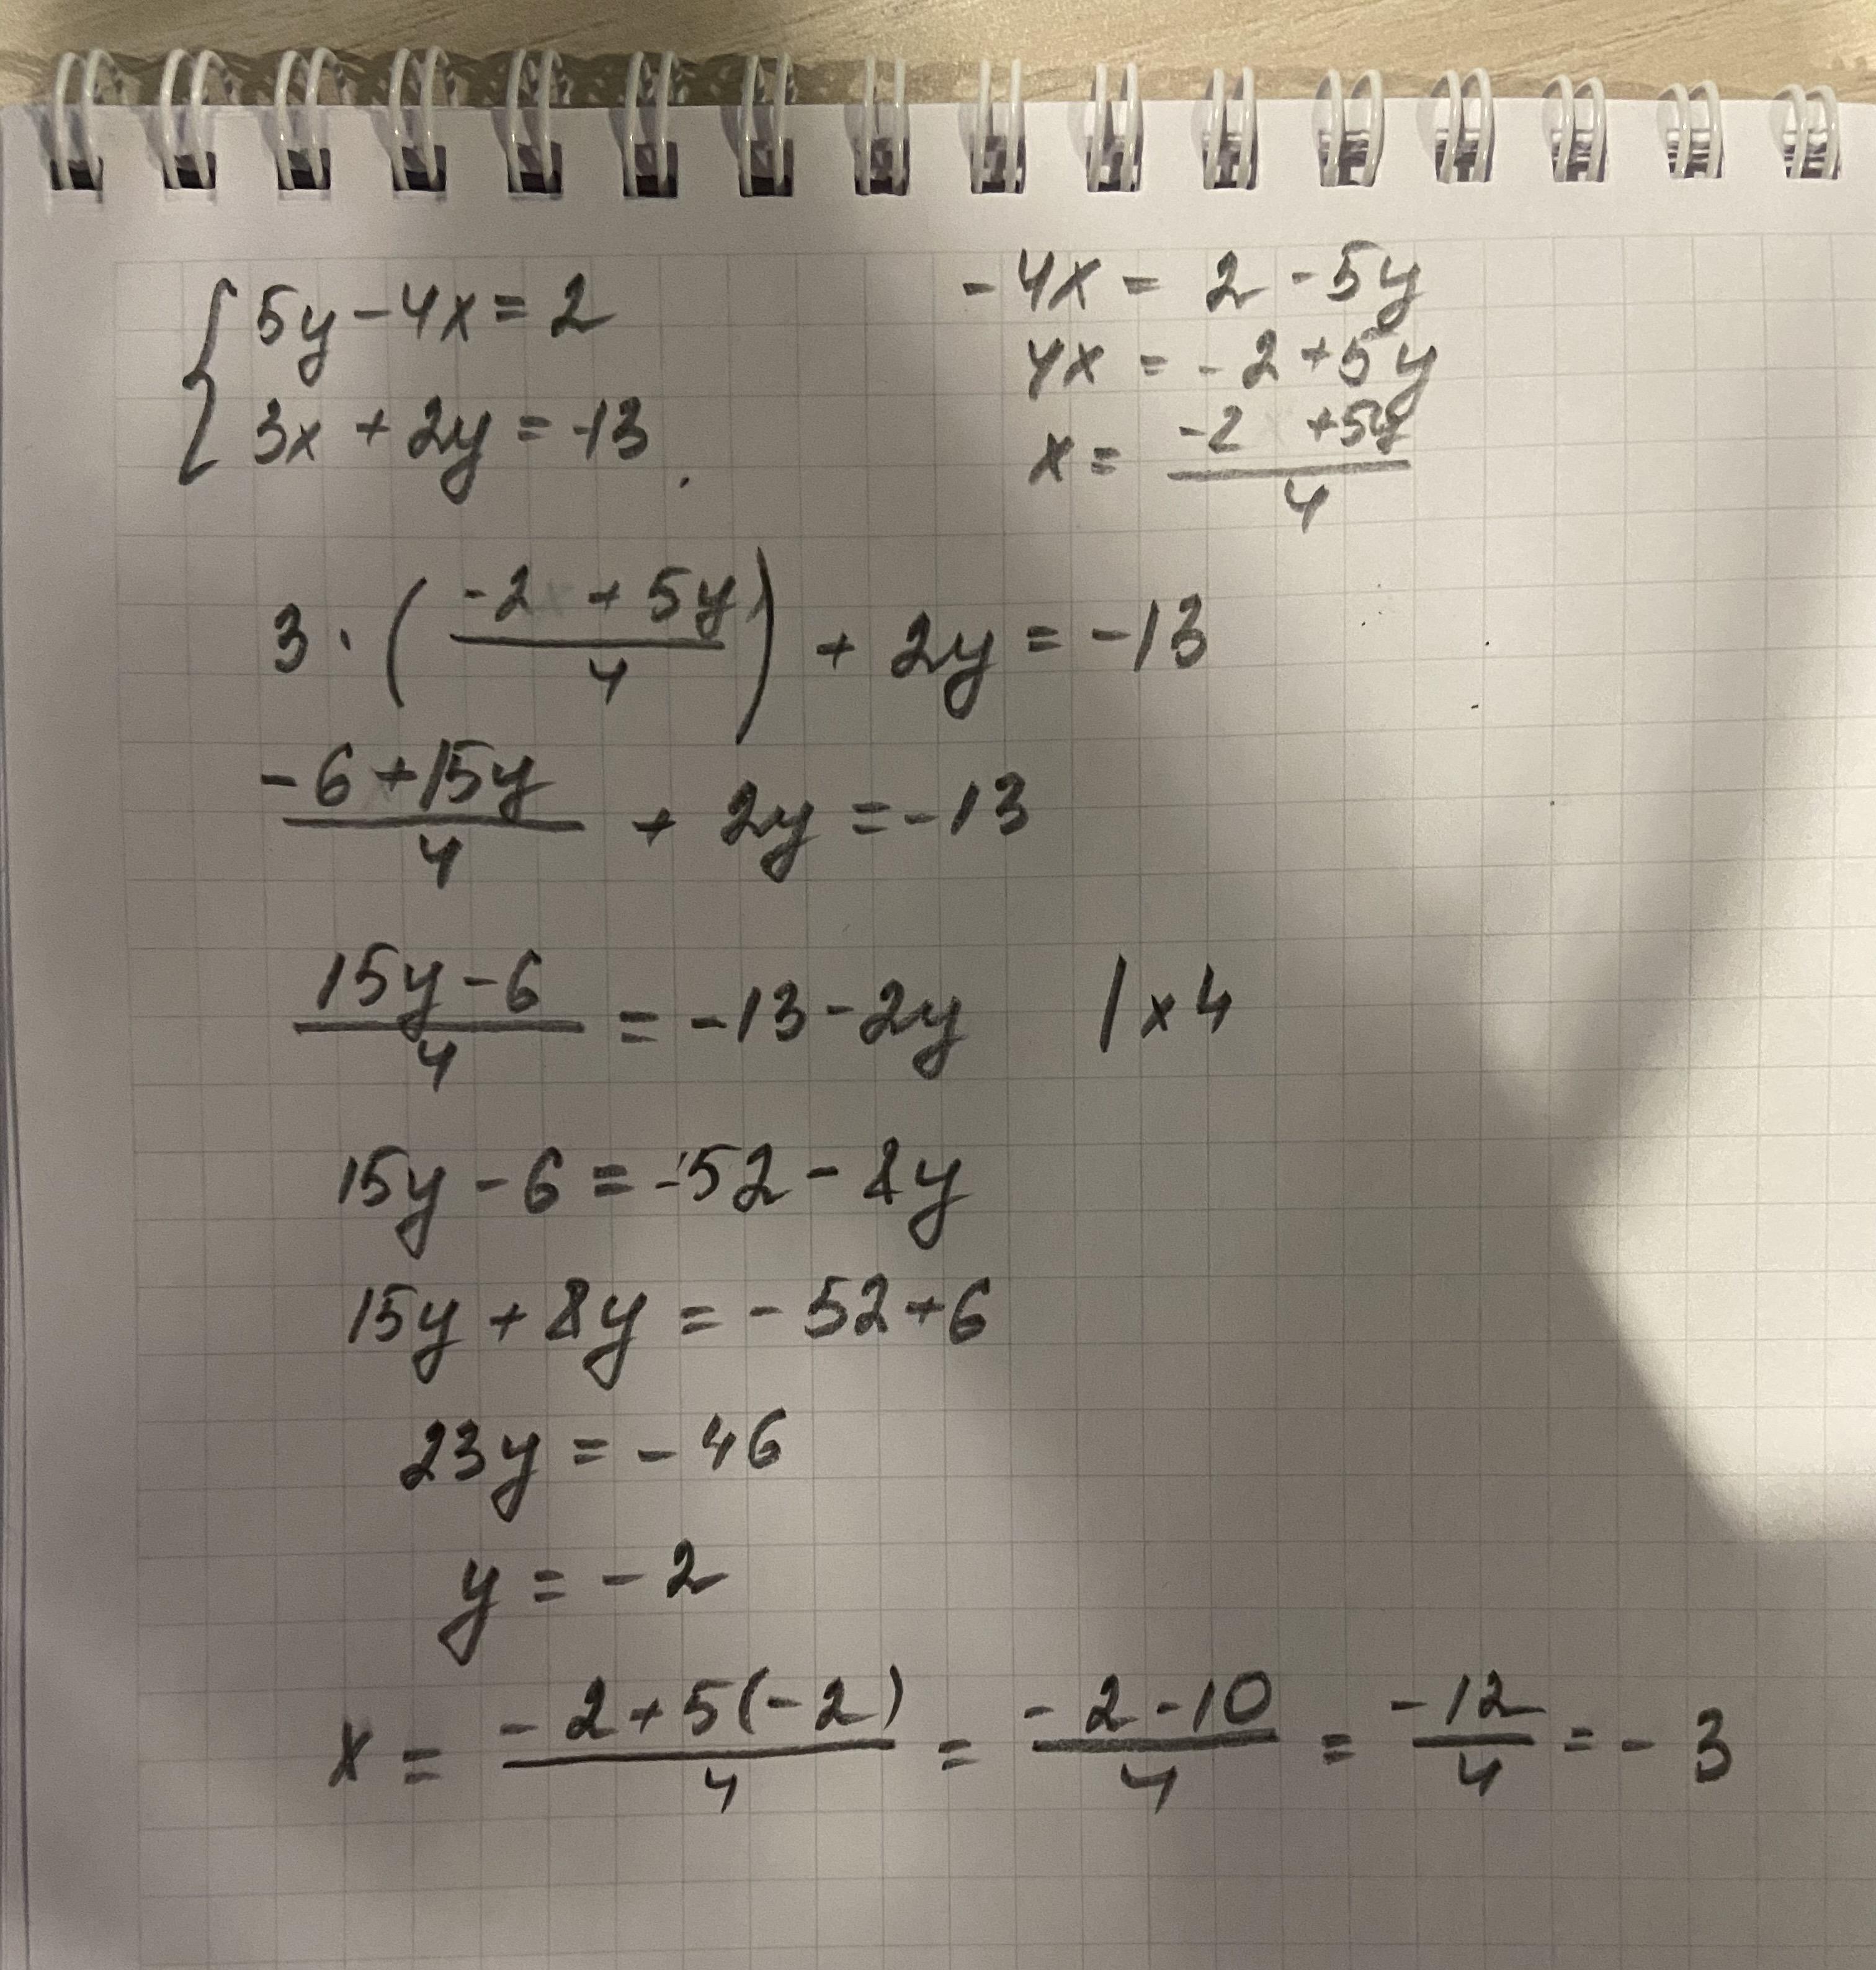 5y-4x=2
3x+2y=-13
-4x=2-5y
4x=-2+5y
x=(-2+5y)/4
3·((-2+5y)/4)+2y=-13
(-6+15y)/4+2y=-13
(15y-6)/4=-13-2y |x4
15y-6=-52-8y
15y+8y=-52+6
23y=-46
y=-2
x=(-2+5(-2))/4=(-2-10)/4=-12/4=-3